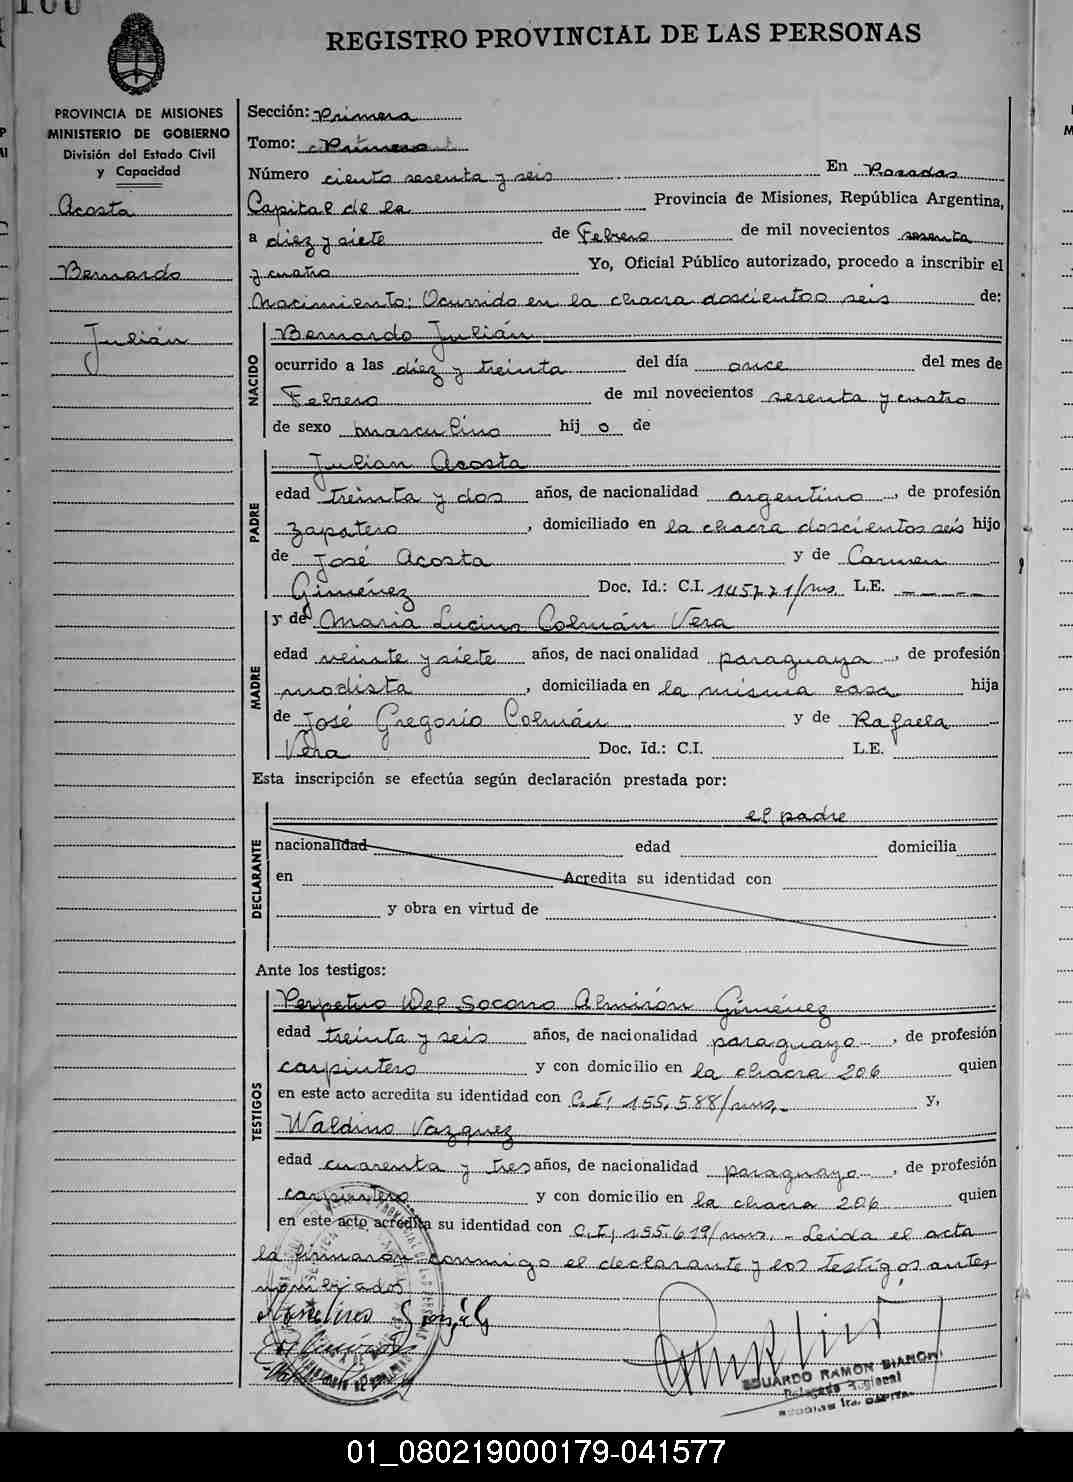 REGISTRO PROVINCIAL DE LAS PERSONAS
PROVINCIA DE MISIONES
MINISTERIO DE GOBIERNO
División del Estado Civil
y Capacidad
Acosta
Bernardo
Julián
Sección: Primera
Tomo: Primero
Número ciento sesenta y seis En Posadas
Capital de la Provincia de Misiones, República Argentina,
a diez y siete de Febrero de mil novecientos sesenta
y cuatro Yo, Oficial Público autorizado, procedo a inscribir el
Nacimiento: Ocurrido en la chacra doscientos seis de:
NACIDO
Bernardo Julián
ocurrido a las diez y treinta del día once del mes de
Febrero de mil novecientos sesenta y cuatro
de sexo masculino hij o de
PADRE
Julian Acosta
edad treinta y dos años, de nacionalidad argentino, de profesión
zapatero, domiciliado en la chacra doscientos seis hijo
de José Acosta y de Carmen
Giménez Doc. Id.: C.I. 145771/mns. L.E. - - - - -
MADRE
y de Maria Lucina Colmán Vera
edad veinte y siete años, de nacionalidad paraguaya, de profesión
modista, domiciliada en la misma casa hija
de José Gregorio Colmán y de Rafaela
Vera Doc. Id.: C.I. L.E.
Esta inscripción se efectúa según declaración prestada por:
DECLARANTE
el padre
nacionalidad edad domicilia
en Acredita su identidad con
y obra en virtud de
Ante los testigos:
TESTIGOS
Perpetuo Del Socorro Almirón Giménez
edad treinta y seis años, de nacionalidad paraguayo, de profesión
carpintero y con domicilio en la chacra 206 quien
en este acto acredita su identidad con C.I; 155.588/mns.- y,
Waldino Vazquez
edad cuarenta y tres años, de nacionalidad paraguayo, de profesión
carpintero y con domicilio en la chacra 206 quien
en este acto acredita su identidad con C.I; 155.619/mns. - Leida el acta
la firmarón conmigo el declarante y los testigos antes
EDUARDO RAMON BIANCHI
Delegado Regional
01_080219000179-041577